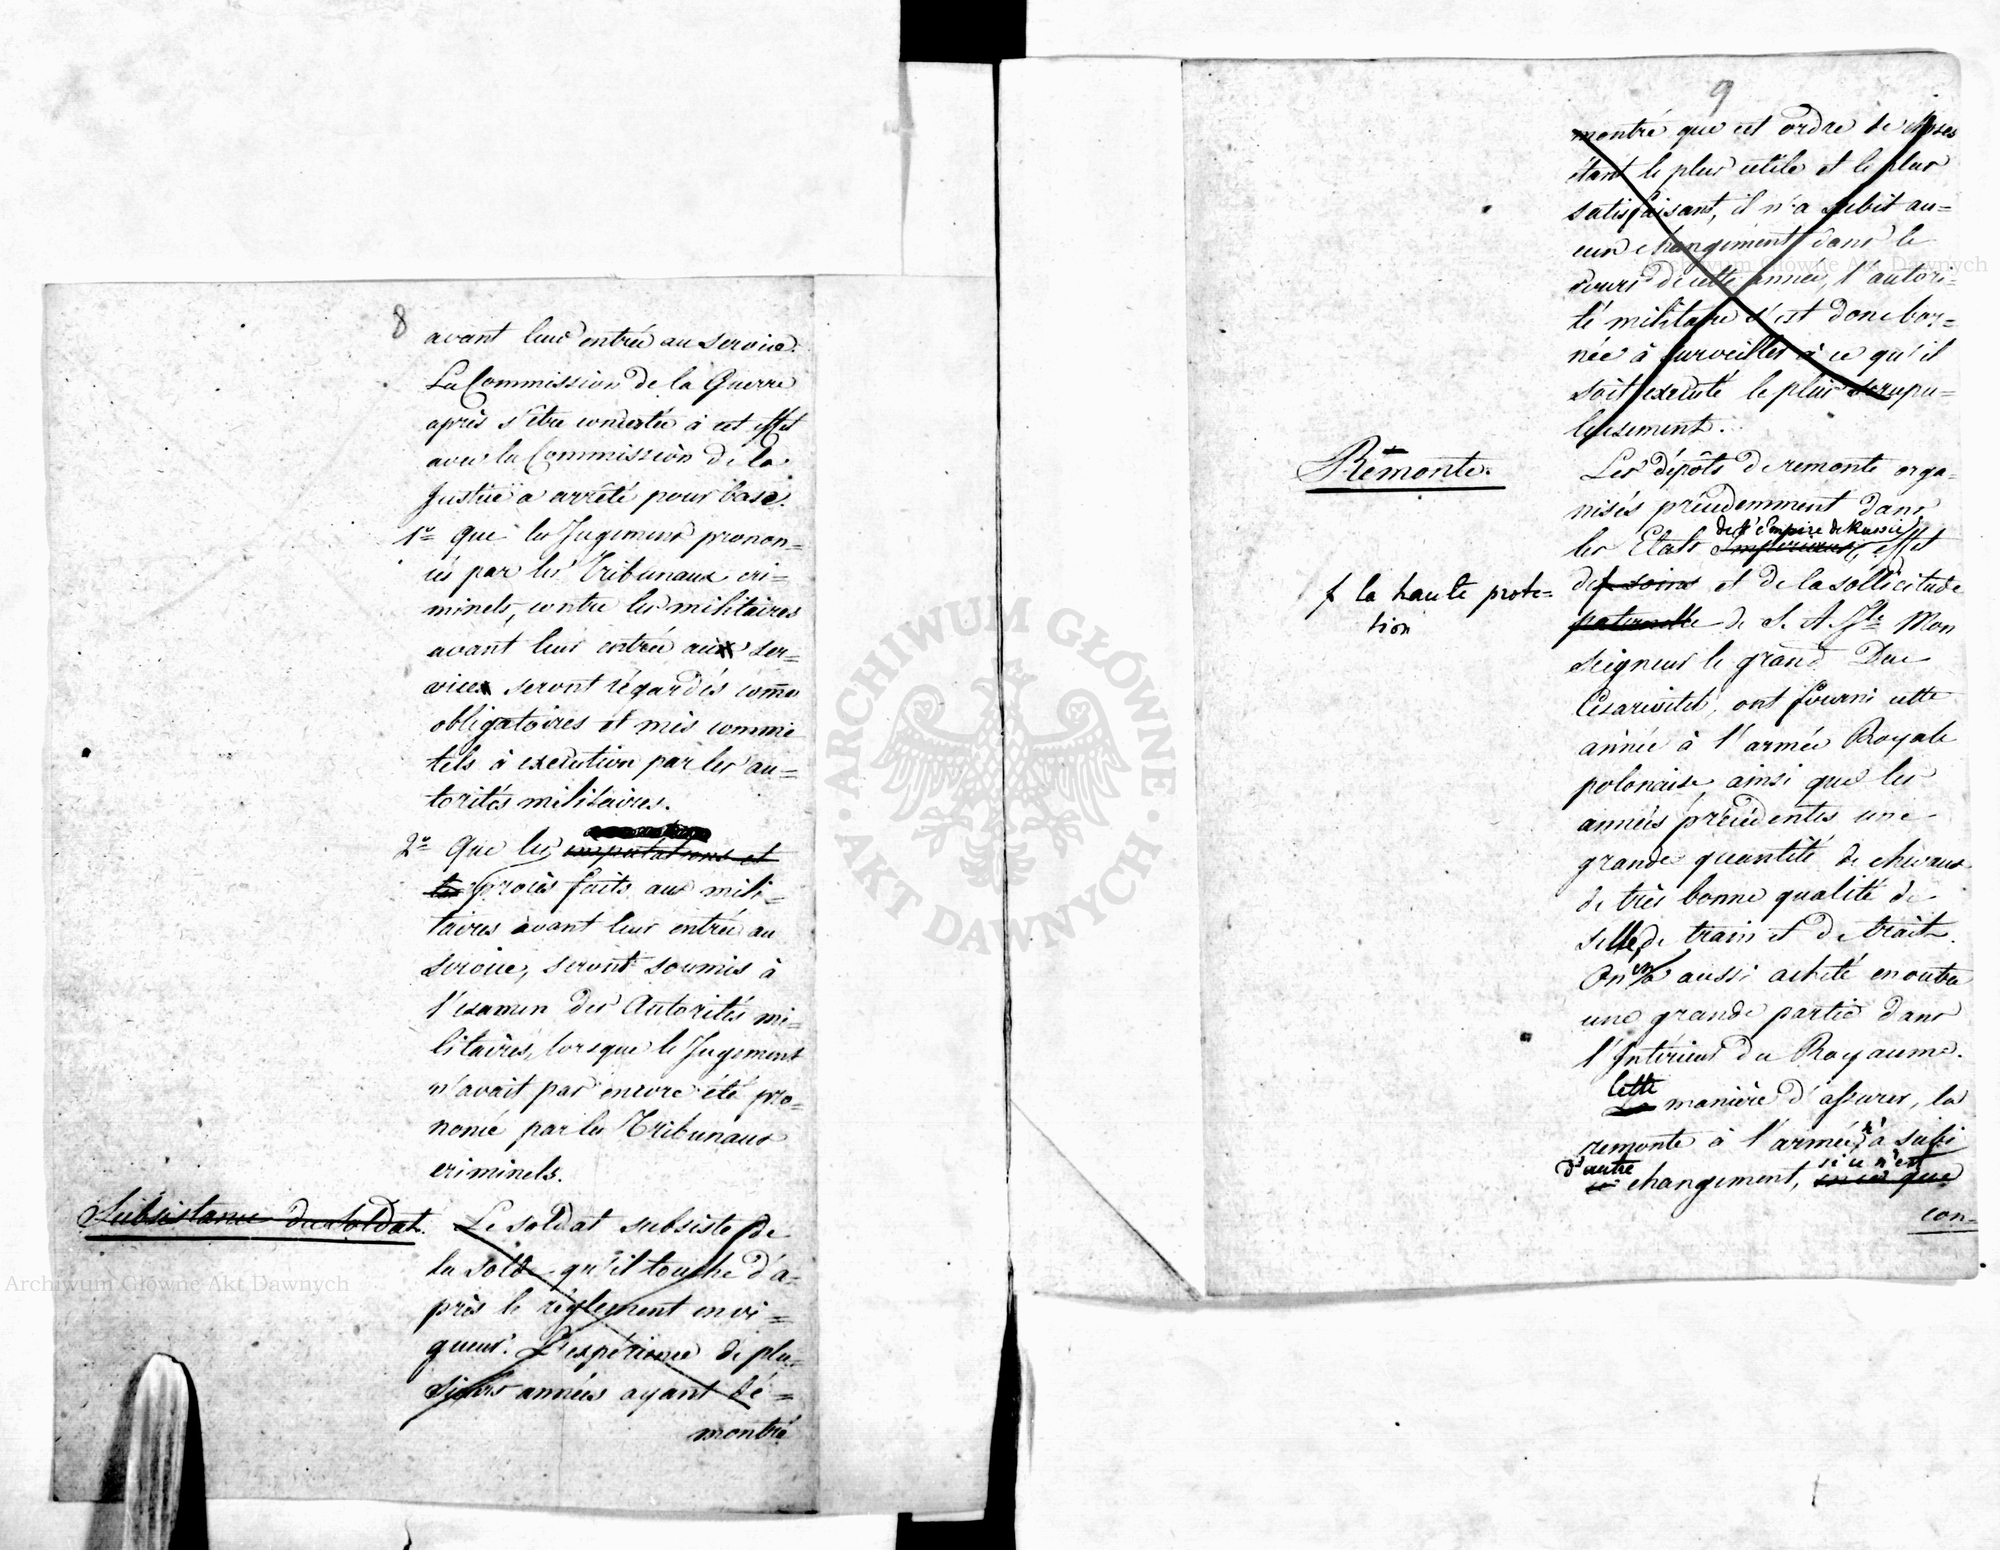 8
avant leur entrée au service.
La Commission de la Guerre
après s'être concertée à cet effet
avec la Commission de la
Justice a arrêté pour base.
1º que les Jugemens pronon=
cés par les Tribunaux cri=
minels, contre les militaires
avant leur entrée aux ser=
vices seront régardés comme
obligatoires et mis comme
tels à execution par les au=
torités militaires.
2º Que les imputations et
les procès faits aux mili=
taires avant leur entrée au
service, seront soumis à
l'examen des Autorités mi=
litaires, lorsque le Jugement
n'avait pas encore été pro=
noncé par les Tribunaux
criminels.
Subsistance du Soldat.
Le soldat subsiste de
la solde qu'il touche d'a=
près le réglement en vi=
gueur. L'expérience de plu=
sieurs années ayant dé=
montré
9
montré que cet ordre de choses
étant le plus utile et le plus
satisfaisant, il n'a subit au=
cun changement dans le
cours de cette année, l'autori=
té militaire s'est donc bor=
née à surveiller à ce qu'il
soit executé le plus scrupu=
leusement.
Rémonte.
Les dépôts de remonte orga=
nisés précedemment dans
de l'Empire de Russie
les Etats Impériaux, effet
f la haute prote=
tion
des soins et de la sollicitude
paternelle de S. A. Jle Mon
seigneur le grand Duc
Cesarewitch, ont fourni cette
année à l'armée Royale
polonaise ainsi que les
années précédentes une
grande quantité de chevaux
de très bonne qualité de
selle, de train et de trait.
On en a aussi acheté en outre
une grande partie dans
l'Intérieur du Royaume.
Cette
La manière d'assurer, la
remonte à l'armée, n'a subi
d'autre
si ce n'est
changement, que
con=
Archiwum Główne Akt Dawnych
Archiwum Główne Akt Dawnych
ARCHIWUM GŁÓWNE AKT DAWNYCH